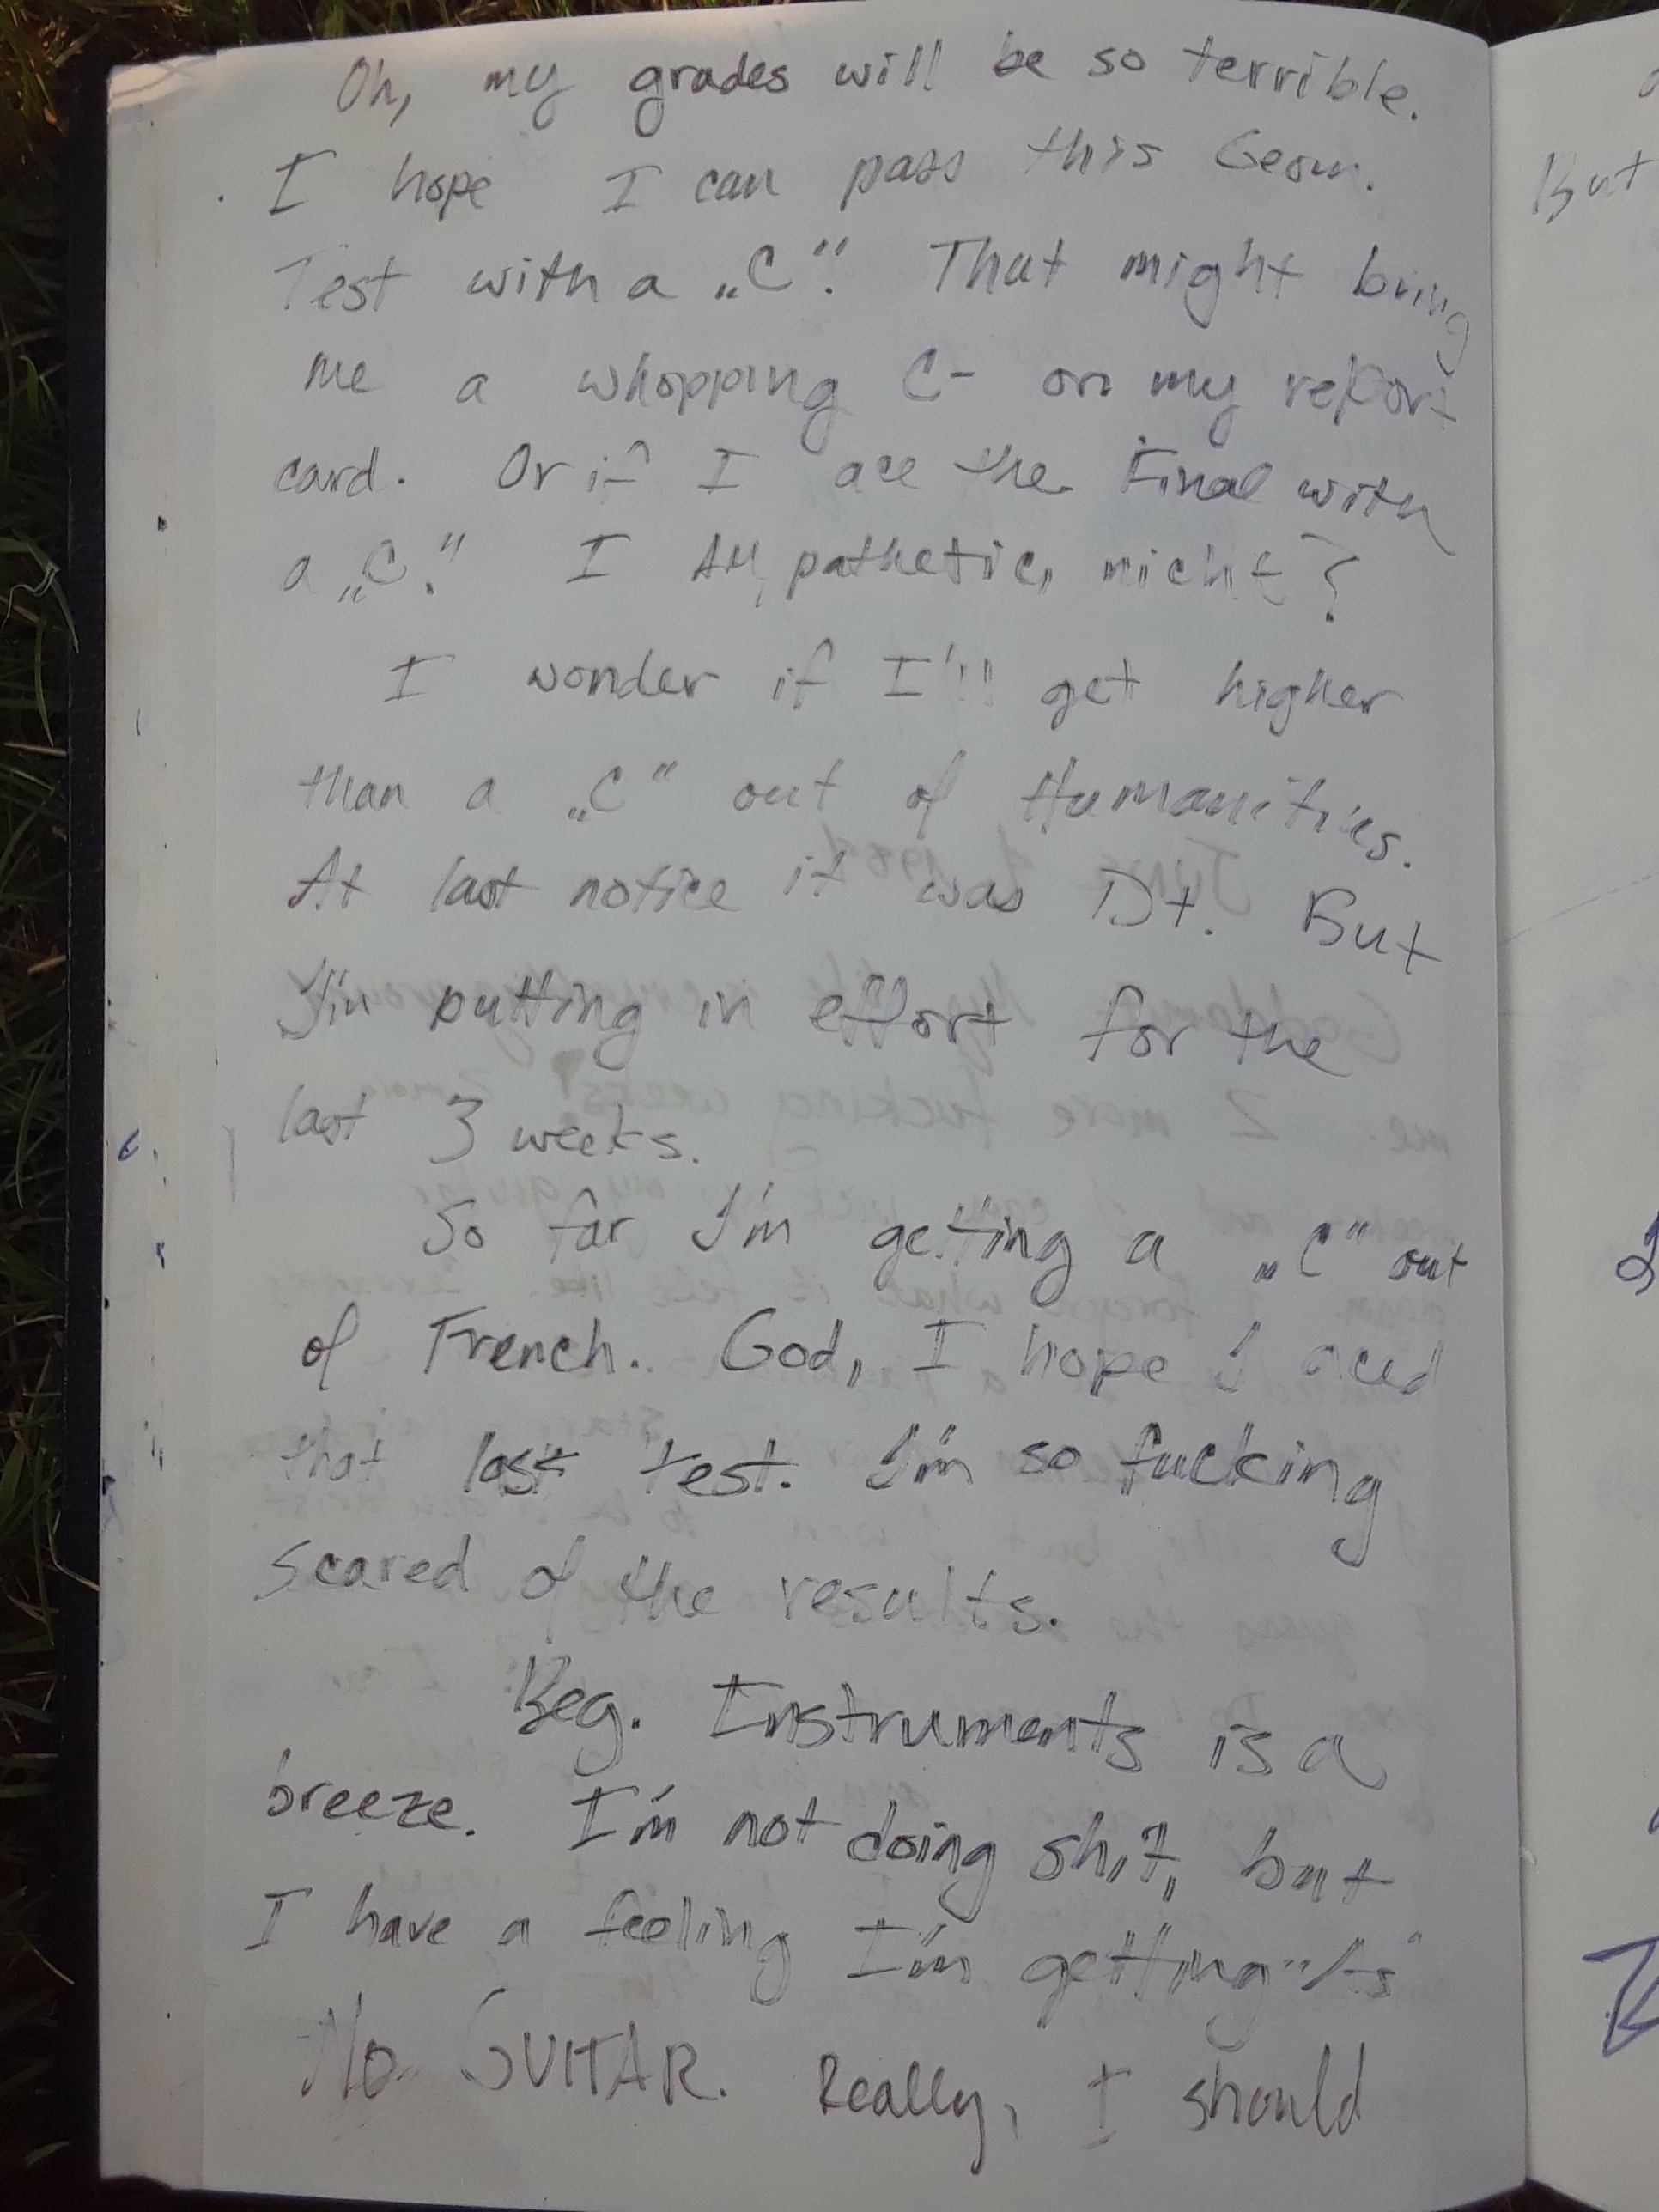 Oh, my grades will be so terrible.
I hope I can pass this Geom.
Test with a „C“. That might bring
me a whopping C- on my report
card. Or if I ace the Final with
a „C.“ I AM pathetic, nicht?
I wonder if I'll get higher
than a „C“ out of Humanities.
At last notice it was D+. But
I'm putting in effort for the
last 3 weeks.
So far I'm getting a „C“ out
of French. God, I hope I aced
that last test. I'm so fucking
scared of the results.
Beg. Instruments is a
breeze. I'm not doing shit, but
I have a feeling I'm getting
No GUITAR. Really, I should
But